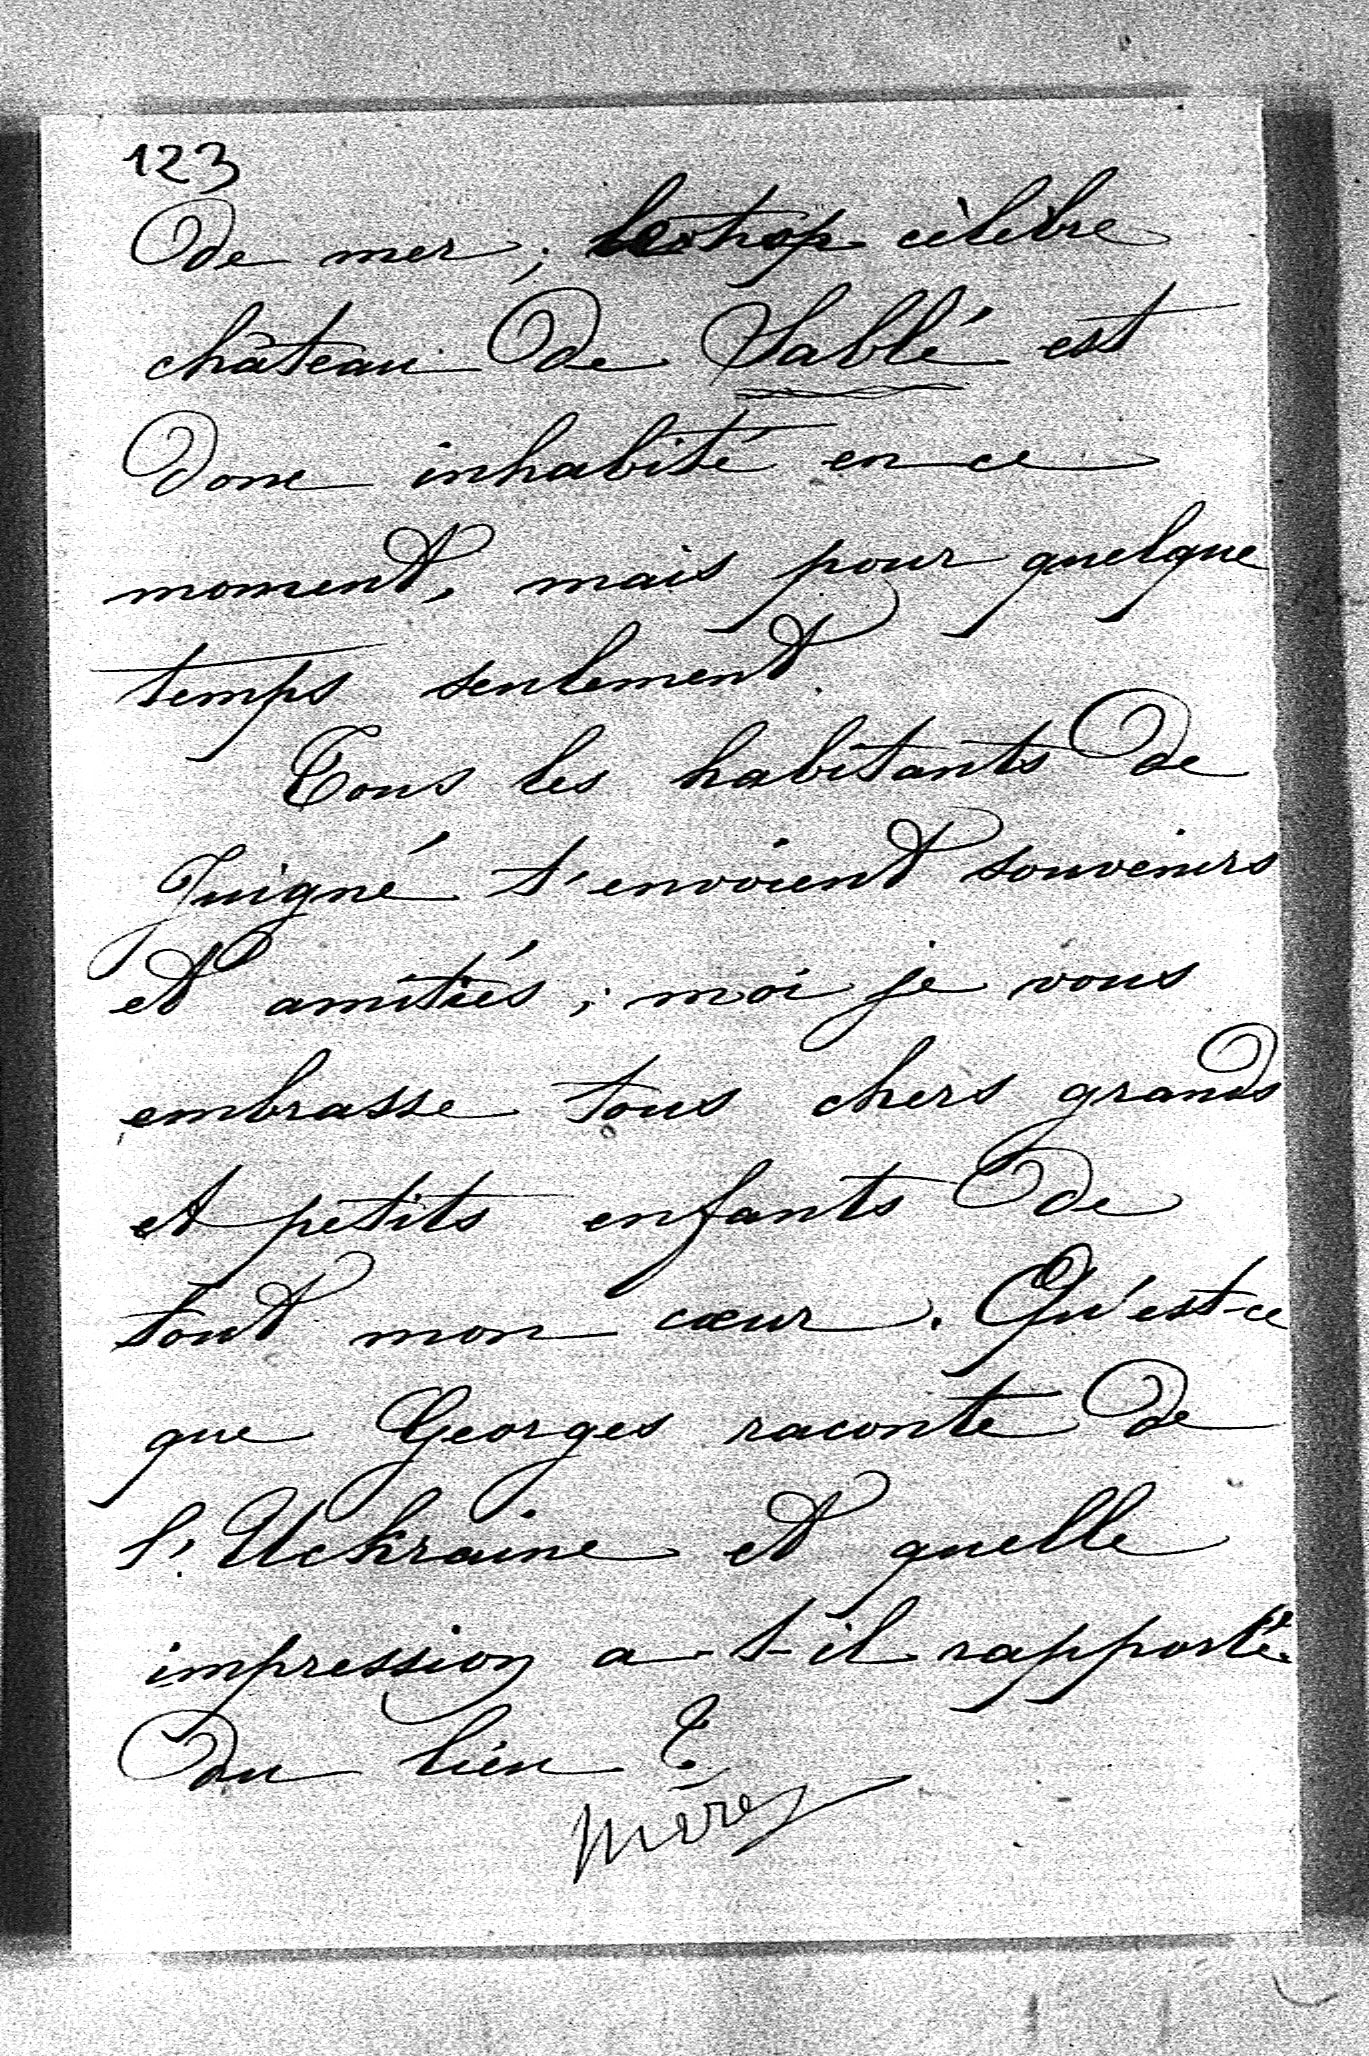 123
de mer ; le trop célèbre
château de Sablé est
donc inhabité en ce
moment, mais pour quelque
temps seulement.
Tous les habitants de
Juigné t'envoient souvenirs
et amitiés ; moi je vous
embrasse tous chers grands
et petits enfants de
tout mon cœur. Qu'est-ce
que Georges raconte de
l'Uckraine et quelle
impression a-t-il rapporté
du lieu ?
Mère